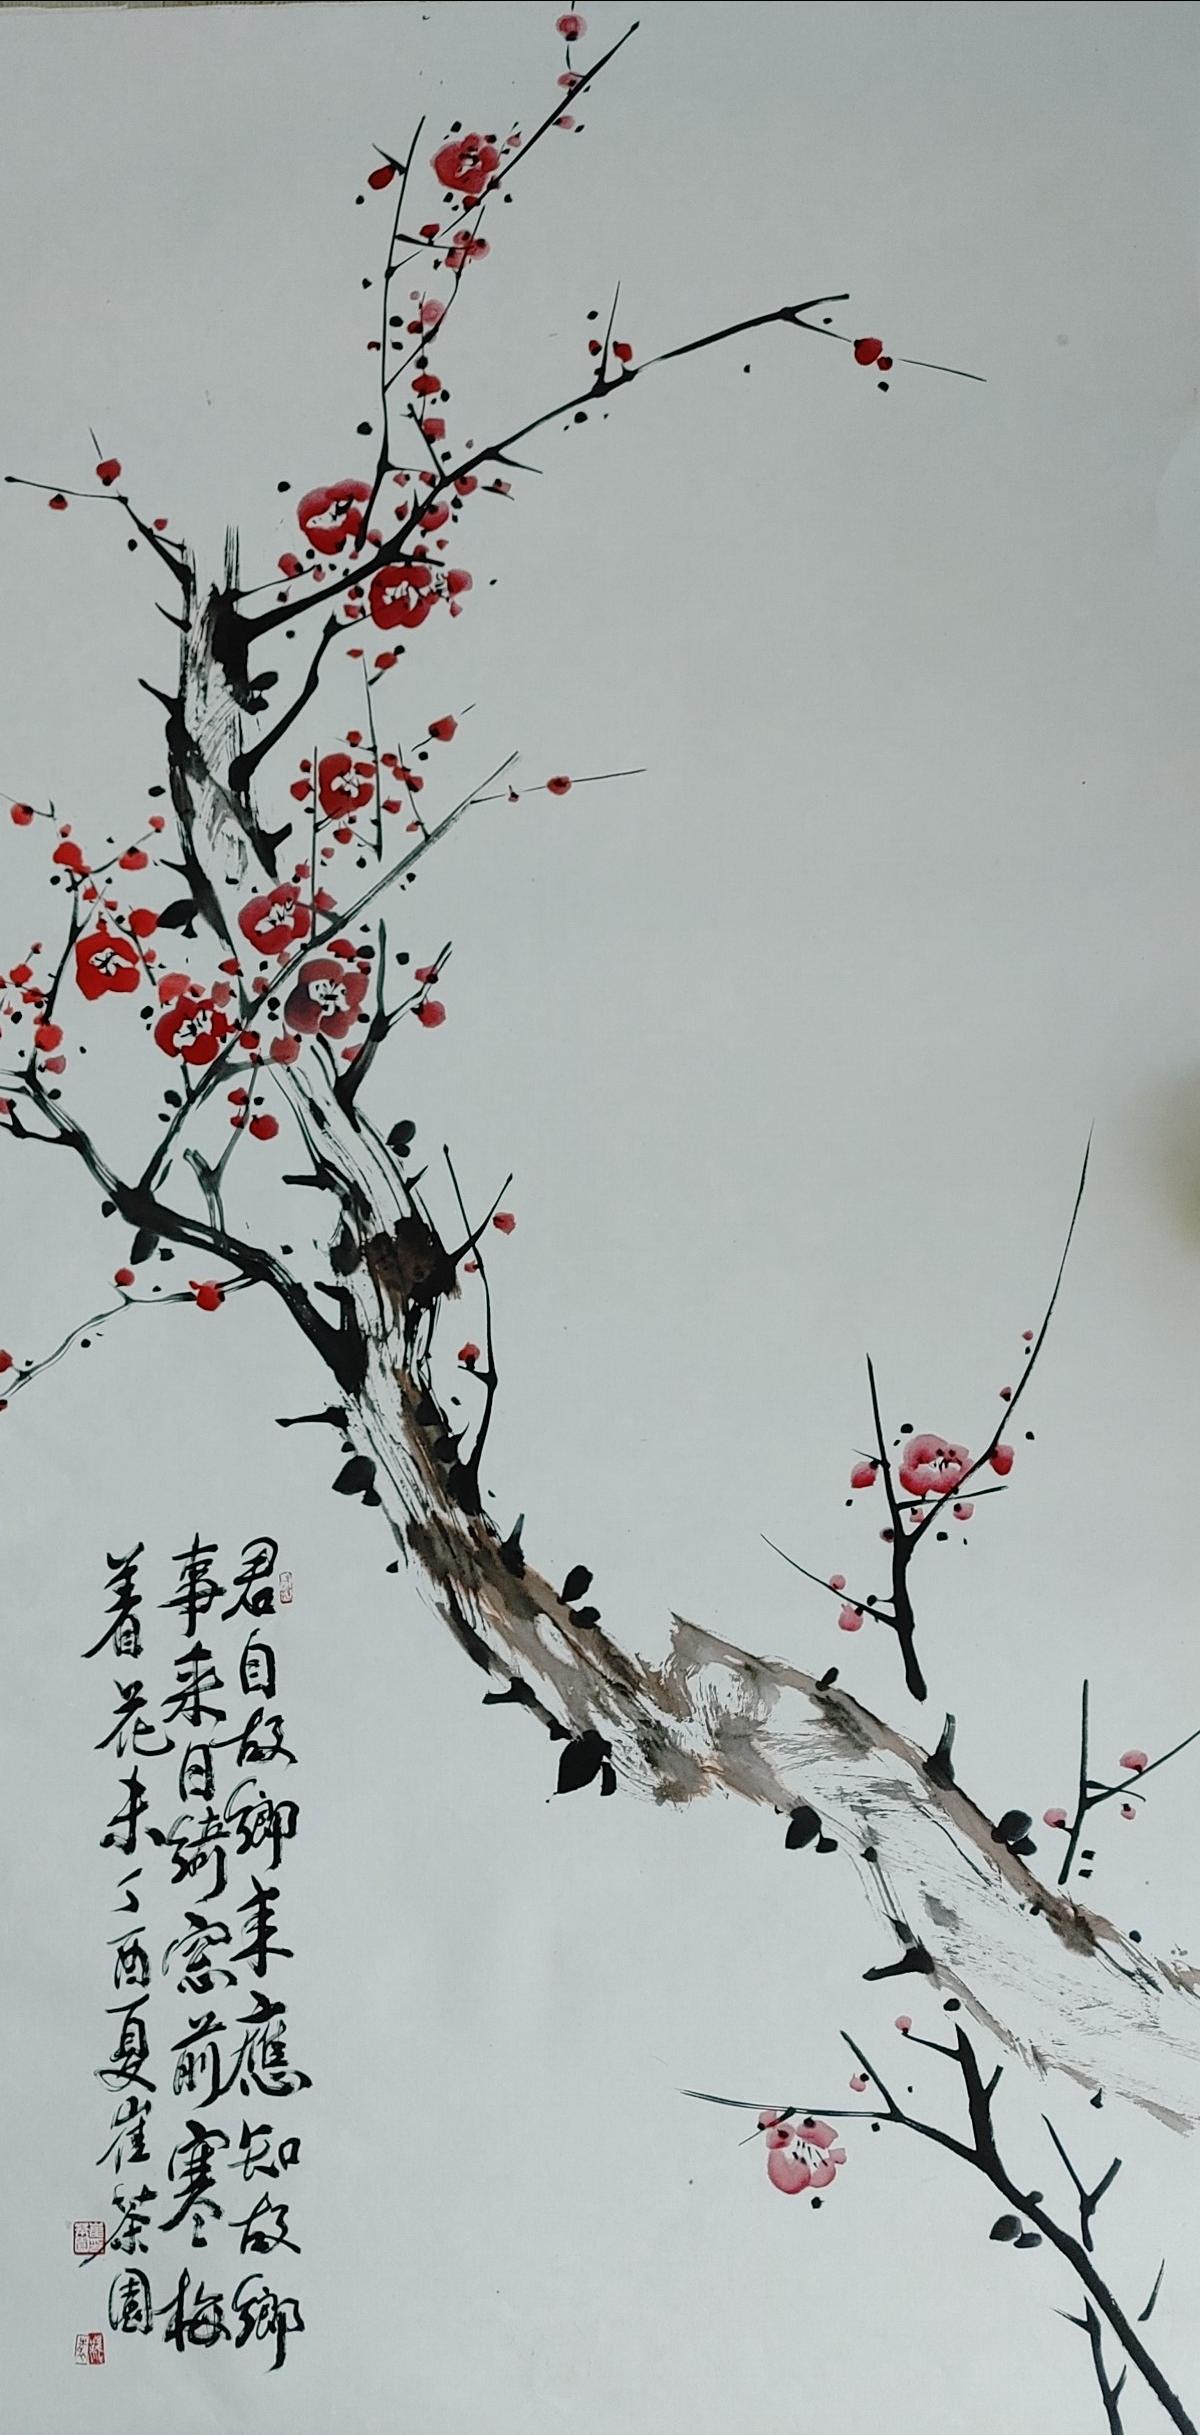 君自故鄉来應知故鄉
事来日綺窓前寒梅
着花未丁酉夏崔茶園